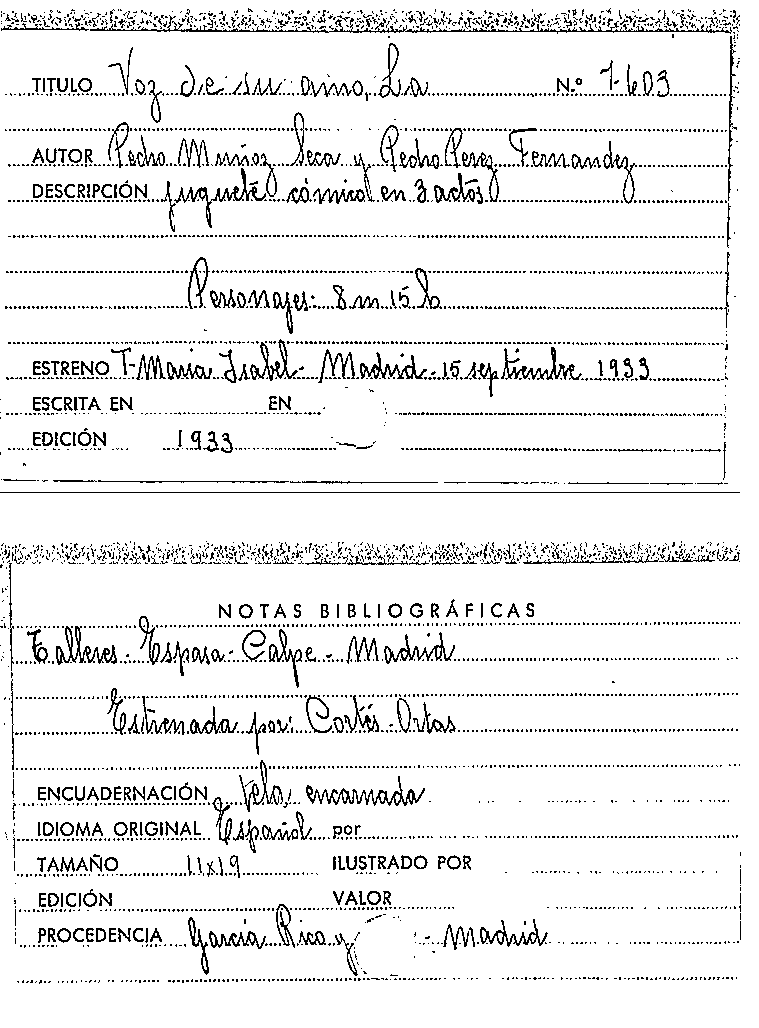 TITULO Voz de su amo, La N.º 7-603
AUTOR Pedro Muñoz Seca y Pedro Perez Fernandez
DESCRIPCIÓN juguete cómico en 3 actos
Personajes: 8 m 15 h
ESTRENO T- Maria Isabel - Madrid - 15 septiembre 1933
ESCRITA EN EN
EDICIÓN 1933
NOTAS BIBLIOGRÁFICAS
Talleres - Espasa - Calpe - Madrid
Estrenada por: Cortés - Ortas
ENCUADERNACIÓN tela encarnada
IDIOMA ORIGINAL Español por
TAMAÑO 11x19 ILUSTRADO POR
EDICIÓN VALOR
PROCEDENCIA García Rico y - Madrid